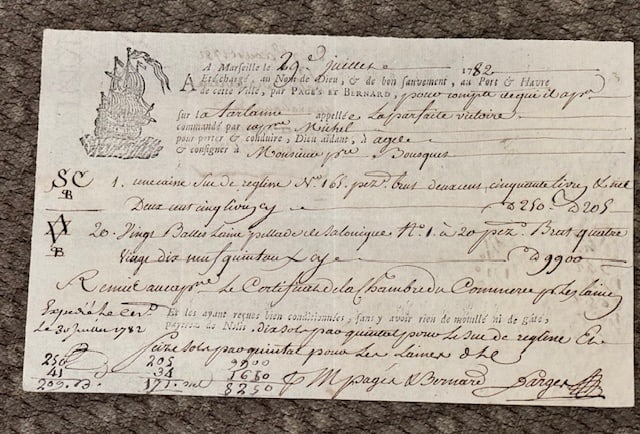 A Marseille le 29e juillet 1782
Et chargé, au Nom de Dieu, & de bon sauvement, au Port & Havre
de cette Ville, par PAGÈS ET BERNARD, pour compte de qui il apn.
sur la tartanne appellée La parfaite victoire
commandé par capne. Michel
pour porter & conduire, Dieu aidant, à agde
& consigner à Monsieur pre Bousquet
SC
B
1. une caine Suc de regline No. 165. pezt. brut deux cent cinquante livres & net
Deux cent cinq livres cy 250 205
B
20. Vingt Balles Laine pellade de Salonique No. 1 à 20 pezt. Brut quatre
Vingt dix neuf quintaux cy 9900
Remis au capne. Le Certificat de la Chambre du Commerce pr Les laines
Expedié Le
Le 30 1782
Et les ayant reçues bien conditionnées, sans y avoir rien de mouillé ni de gâté,
payerez de Nolis, dix sols par quintal pour Le Suc de regline Et
Seize Sols par quintal pour Les Laines
250 205 9900
41 34 1650
209. 171. 8250
Pagès & Bernard